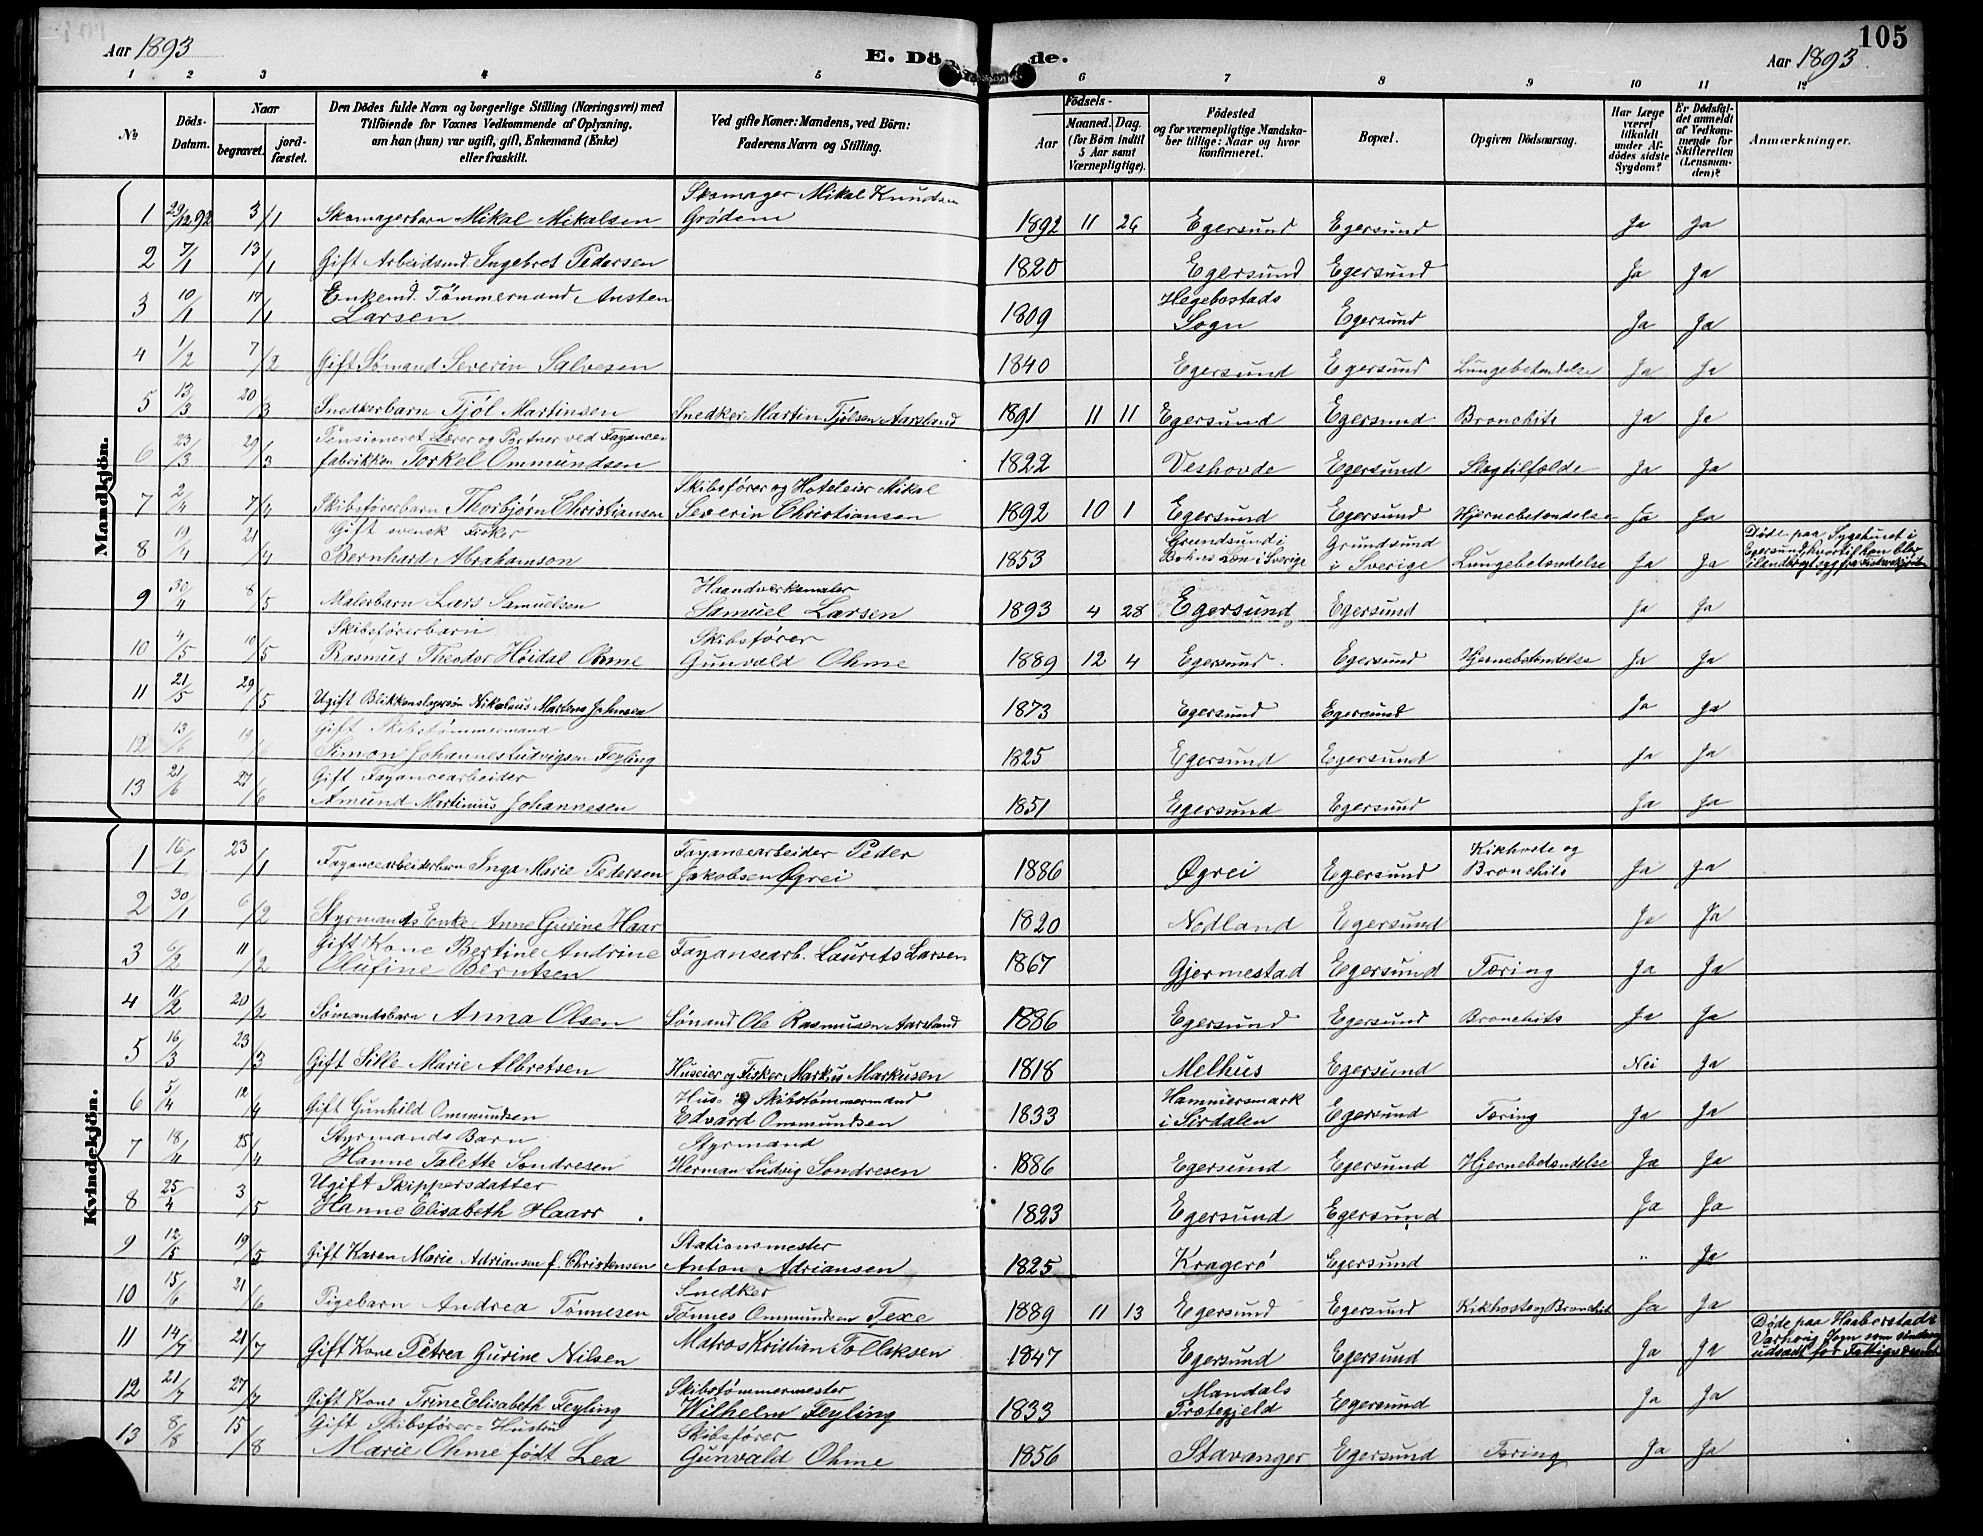 Aar 1893 E. Dö de. Aar 1893 105
1 2 3 4 5 6 7 8 9 10 11 12
№ Döds-Datum. Naar begravet. jord-fæstet. Den Dödes fulde Navn og borgerlige Stilling (Næringsvei) med Tilföiende for Voxnes Vedkommende af Oplysning, om han (hun) var ugift, gift, Enkemand (Enke) eller fraskilt. Ved gifte Koner: Mandens, ved Börn: Faderens Navn og Stilling. Födsels- Aar Maaned. Dag. (for Börn indtil 5 Aar samt Værnepligtige). Födested og for værnepligtige Mandskaber tillige: Naar og hvor konfirmeret. Bopæl. Opgiven Dödsaarsag. Har Læge været tilkaldt under Afdödes sidste Sygdom? Er Dödsfaldet anmeldt af Vedkommende for Skifteretten (Lensmanden)? Anmærkninger.
Mandkjön.
1 29/12 92 3/1 Skomagerbarn Mikal Mikalsen Skomager Mikal Knudsen Grødem 1892 11 26 Egersund Egersund Ja Ja
2 7/1 13/1 Gift Arbeidsmd. Ingebret Pedersen 1820 Egersund Egersund Ja Ja
3 10/1 17/1 Enkemd. Tømmermand Ansten Larsen 1809 Hegebostads Sogn Egersund Ja Ja
4 1/2 7/2 Gift Sømand Severin Salvesen 1840 Egersund Egersund Lungebetændelse Ja Ja
5 13/3 20/3 Snedkerbarn Tjøl Martinsen Snedker Martin Tjølsen Aarsland 1891 11 11 Egersund Egersund Bronchite Ja Ja
6 23/3 29/3 Pensioneret Lærer og Portner ved Fayance-
fabrikken Torkel Ommundsen 1822 Veshovde Egersund Slagtilfælde Ja Ja
7 2/4 7/4 Skibsførerbarn Thorbjørn Christiansen Skibsfører og Hoteleier Mikal Severin Christiansen 1892 10 1 Egersund Egersund Hjernebetændelse Ja Ja
8 19/4 21/4 Gift svensk Fisker Bernhard Abrahamson 1853 Grundsund i Bohus Len i Sverige Grundsund i Sverige Lungebetændelse Ja Ja Døde paa Sygehuset i Egersund, hvortil han blev
9 30/4 8/5 Malerbarn Lars Samuelsen Haandverksmaler Samuel Larsen 1893 4 28 Egersund Egersund Ja Ja
10 4/5 10/5 Skibsførerbarn Rasmus Theodor Høidal Ohme Skibsfører Gunvald Ohme 1889 12 4 Egersund Egersund Hjernebetændelse Ja Ja
11 21/5 29/5 Ugift Blikkenslagersøn Nikolaus Martens Johnsen 1873 Egersund Egersund Ja Ja
12 13/6 19/6 Gift Skibstømmermand Simon Johannes Ludvigsen Feyling 1825 Egersund Egersund Ja Ja
13 21/6 27/6 Gift Fayancearbeider Amund Martinius Johannesen 1851 Egersund Egersund Ja Ja
Kvindekjön.
1 16/1 23/1 Fayancearbeiderbarn Inga Marie Pedersen Fayancearbeider Peder Jakobsen Øgrei 1886 Øgrei Egersund Kikhoste og Bronchits Ja Ja
2 30/1 6/2 Styrmands Enke Anne Gurine Haar 1820 Nodland Egersund Ja Ja
3 6/2 11/2 Gift Kone Bertine Andrine Olufine Berntsen Fayansearb. Laurits Larsen 1867 Gjermestad Egersund Tæring Ja Ja
4 11/2 20/2 Sømandsbarn Anna Olsen Sømand Ole Rasmusen Aarsland 1886 Egersund Egersund Bronchits Ja Ja
5 16/3 23/3 Gift Sille Marie Albretsen Huseier og Fisker Markus Markusen 1818 Melhus Egersund Nei Ja
6 5/4 12/4 Gift Gunhild Ommundsen Hus- og Skibstømmermand Edvard Ommundsen 1833 Hammersmark i Sirdalen Egersund Tæring Ja Ja
7 18/4 25/4 Styrmands Barn Hanne Talette Sondresen Styrmand Herman Ludvig Sondresen 1886 Egersund Egersund Hjernebetændelse Ja Ja
8 25/4 3/5 Ugift Skippersdatter Hanne Elisabeth Haarr 1823 Egersund Egersund Ja Ja
9 12/5 19/5 Gift Karen Marie Adriansen f. Christensen Stationsmester Anton Adriansen 1825 Kragerö Egersund " Ja
10 15/6 21/6 Pigebarn Andrea Tønnesen Snedker Tønnes Ommundsen Texe 1889 11 13 Egersund Egersund Kikhoste og Bronchit Ja Ja
11 14/7 21/7 Gift Kone Petrea Gurine Nilsen Matros Kristian Tollaksen 1847 Egersund Egersund Ja Ja Døde paa Haaberstad i Varhoug Sogn som sindssyg udsadt for Fattigvæsenet
12 21/7 27/7 Gift Kone Trine Elisabeth Feyling Skibstømmermester Wilhelm Feyling 1833 Mandals Præstegjeld Egersund Ja Ja
13 8/8 15/8 Gift Skibsfører-Hustru Marie Ohme født Lea Skibsfører Gunvald Ohme 1856 Stavanger Egersund Tæring Ja Ja